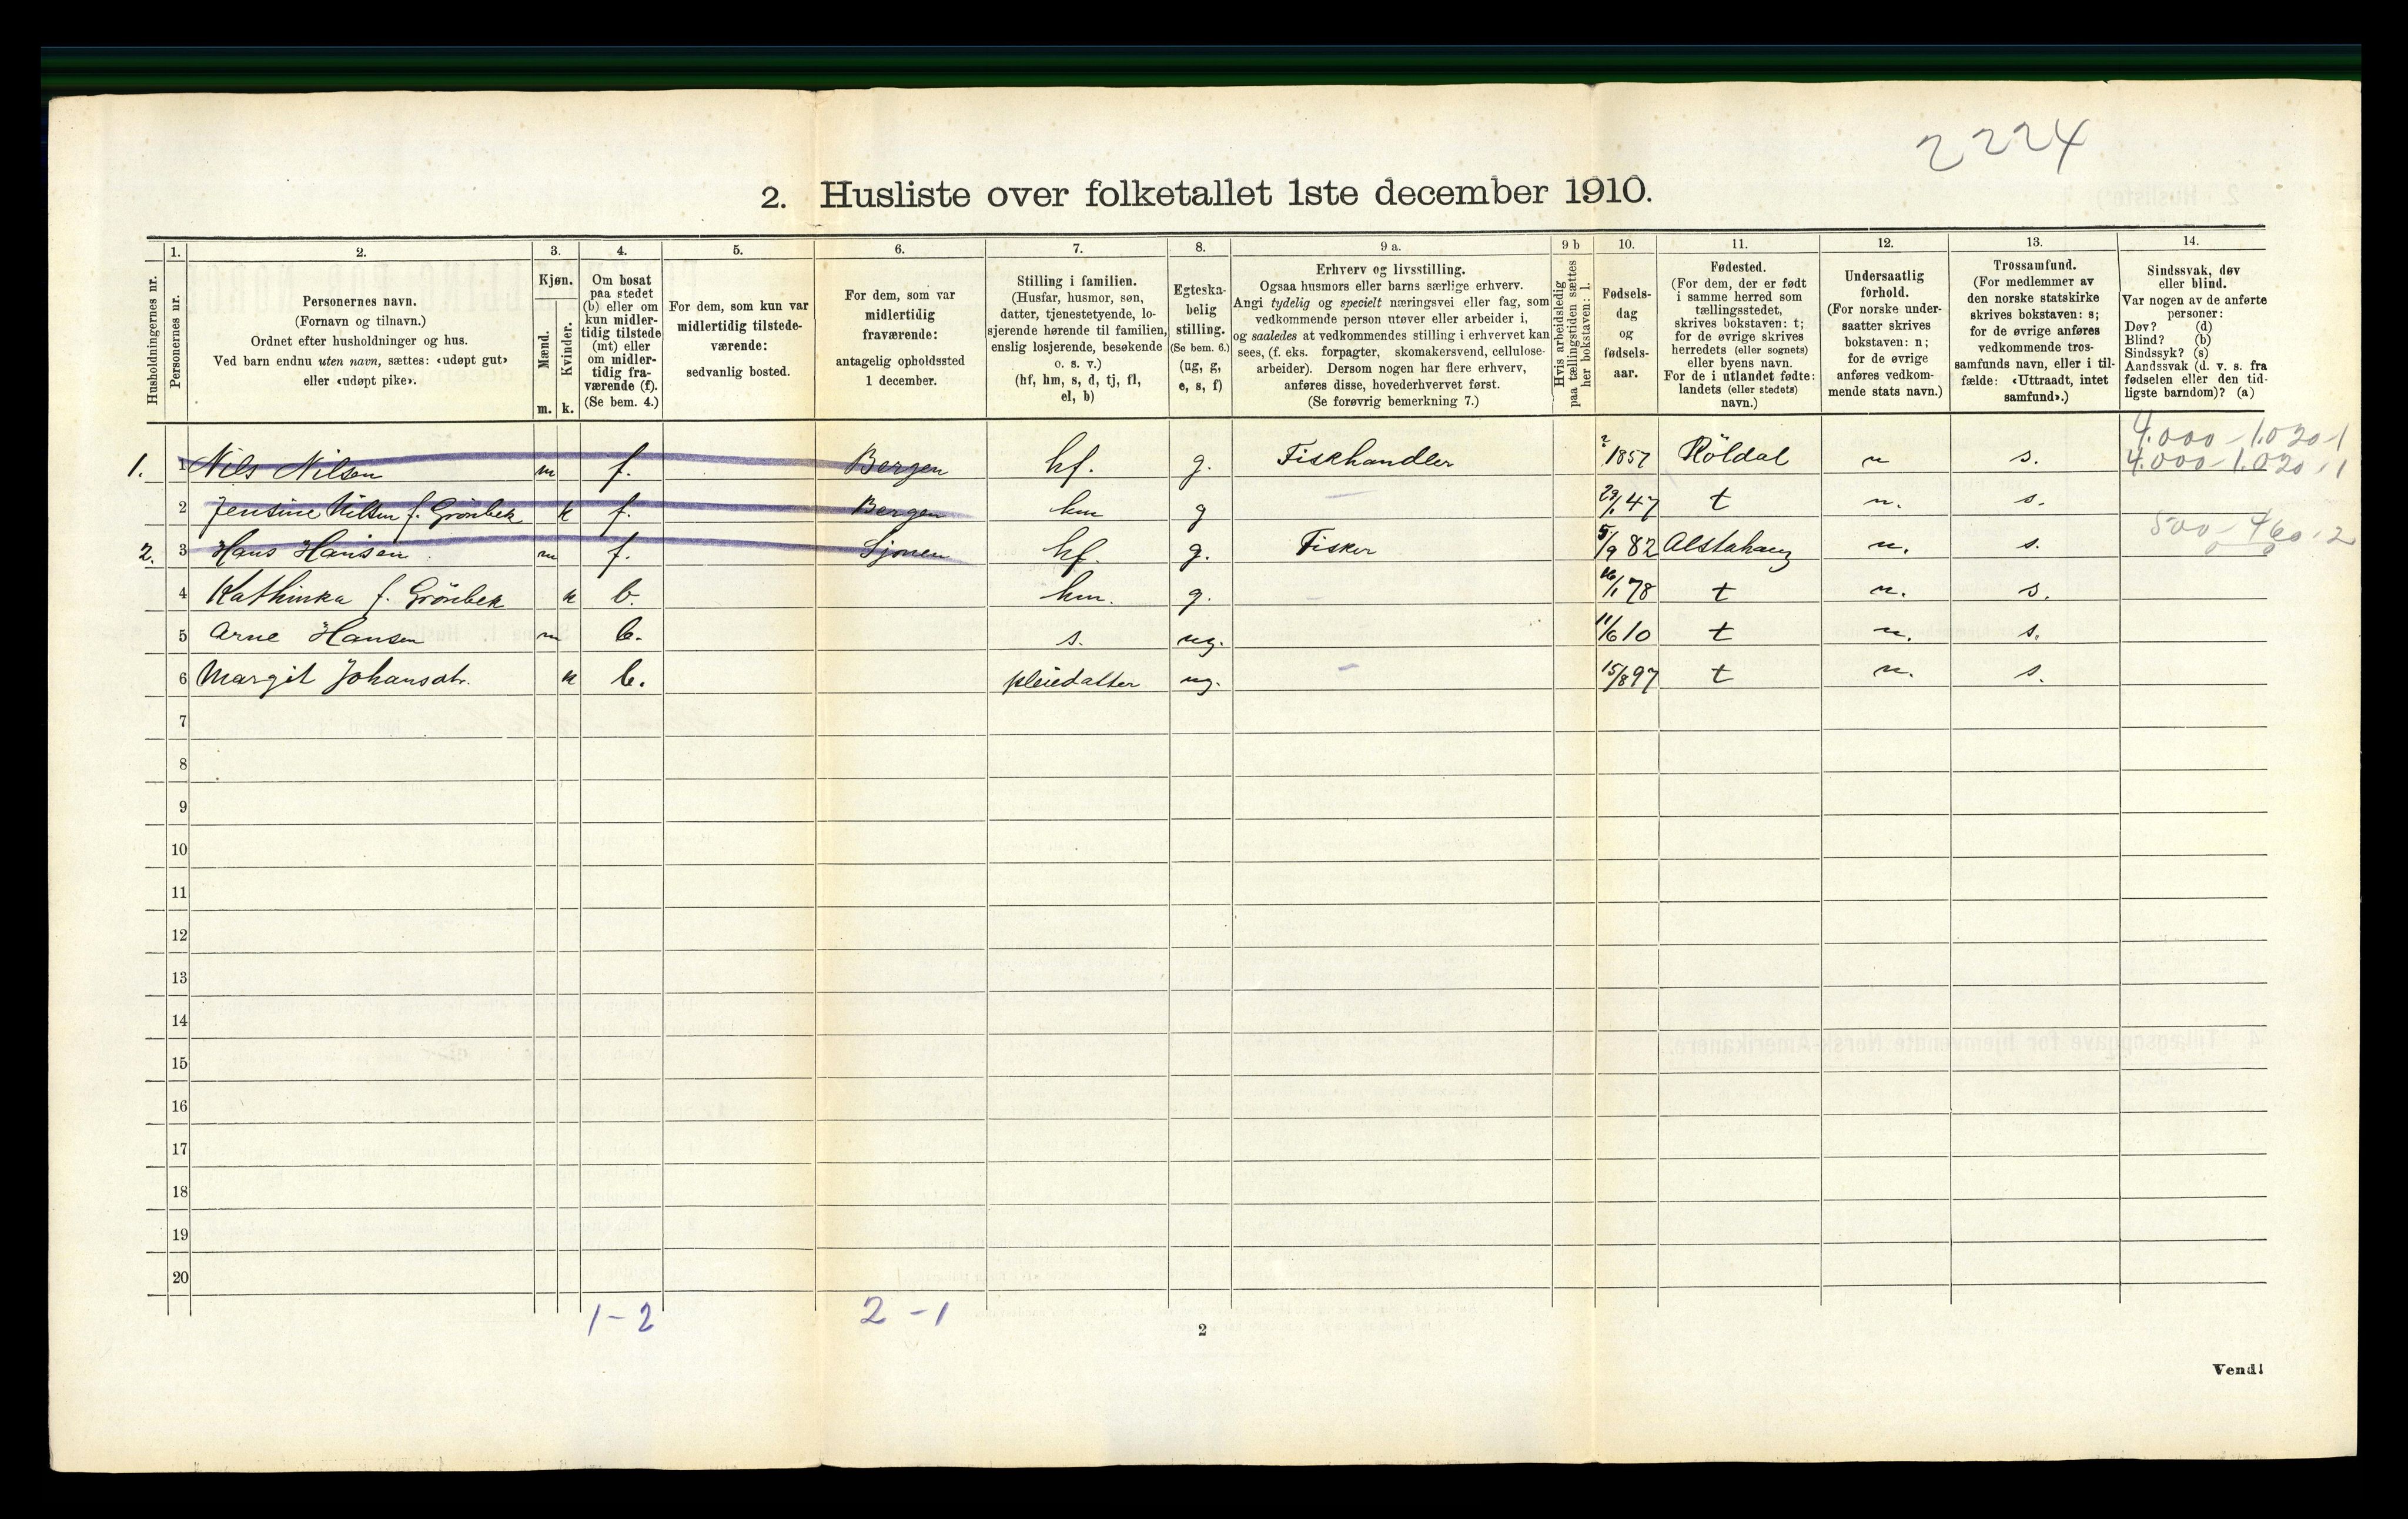 2224
2. Husliste over folketallet 1ste december 1910.
Husholdningernes nr.
1.
Personernes nr.
2.
Personernes navn.
(Fornavn og tilnavn.)
Ordnet efter husholdninger og hus.
Ved barn endnu uten navn, sættes: «udøpt gut»
eller «udøpt pike».
3.
Kjøn.
Mænd.
m.
Kvinder.
k.
4.
Om bosat
paa stedet
(b) eller om
kun midler-
tidig tilstede
(mt) eller
om midler-
tidig fra-
værende (f).
(Se bem. 4.)
5.
For dem, som kun var
midlertidig tilstede-
værende:
sedvanlig bosted.
6.
For dem, som var
midlertidig
fraværende:
antagelig opholdssted
1 december.
7.
Stilling i familien.
(Husfar, husmor, søn,
datter, tjenestetyende, lo-
sjerende hørende til familien,
enslig losjerende, besøkende
o. s. v.)
(hf, hm, s, d, tj, fl,
el, b)
8.
Egteska-
belig
stilling.
(Se bem. 6.)
(ug, g,
e, s, f)
9 a.
Erhverv og livsstilling.
Ogsaa husmors eller barns særlige erhverv.
Angi tydelig og specielt næringsvei eller fag, som
vedkommende person utøver eller arbeider i,
og saaledes at vedkommendes stilling i erhvervet kan
sees, (f. eks. forpagter, skomakersvend, cellulose-
arbeider). Dersom nogen har flere erhverv,
anføres disse, hovederhvervet først.
(Se forøvrig bemerkning 7.)
9 b
Hvis arbeidsledig
paa tællingstiden sættes
her bokstaven: l.
10.
Fødsels-
dag
og
fødsels-
aar.
11.
Fødested.
(For dem, der er født
i samme herred som
tællingsstedet,
skrives bokstaven: t;
for de øvrige skrives
herredets (eller sognets)
eller byens navn.
For de i utlandet fødte:
landets (eller stedets)
navn.)
12.
Undersaatlig
forhold.
(For norske under-
saatter skrives
bokstaven: n;
for de øvrige
anføres vedkom-
mende stats navn.)
13.
Trossamfund.
(For medlemmer av
den norske statskirke
skrives bokstaven: s;
for de øvrige anføres
vedkommende tros-
samfunds navn, eller i til-
fælde: «Uttraadt, intet
samfund».)
14.
Sindssvak, døv
eller blind.
Var nogen av de anførte
personer:
Døv? (d)
Blind? (b)
Sindssyk? (s)
Aandssvak (d. v. s. fra
fødselen eller den tid-
ligste barndom)? (a)
4.000 - 1.020 - 1
1. 1 Nils Nilsen m f. Bergen hf. g. Fiskhandler ?/1857 Röldal n s. 4.000 - 1.020 - 1
2 Jensine Nilsen f. Grönbek k f. Bergen hm g 29/1 47 t n. s.
2. 3 Hans Hansen m f. Sjonen hf. g. Fisker 5/9 82 Alstahaug n. s. 500 - 460 - 2
4 Kathinka f. Grönbek k b. hm. g. 16/1 78 t n. s.
5 Arne Hansen m b. s. ug. 11/6 10 t n. s.
6 Margit Johansdtr. k b. pleiedatter ug. - 15/8 97 t n. s.
7
8
9
10
11
12
13
14
15
16
17
18
19
20
1 - 2 2 - 1
2
Vend!